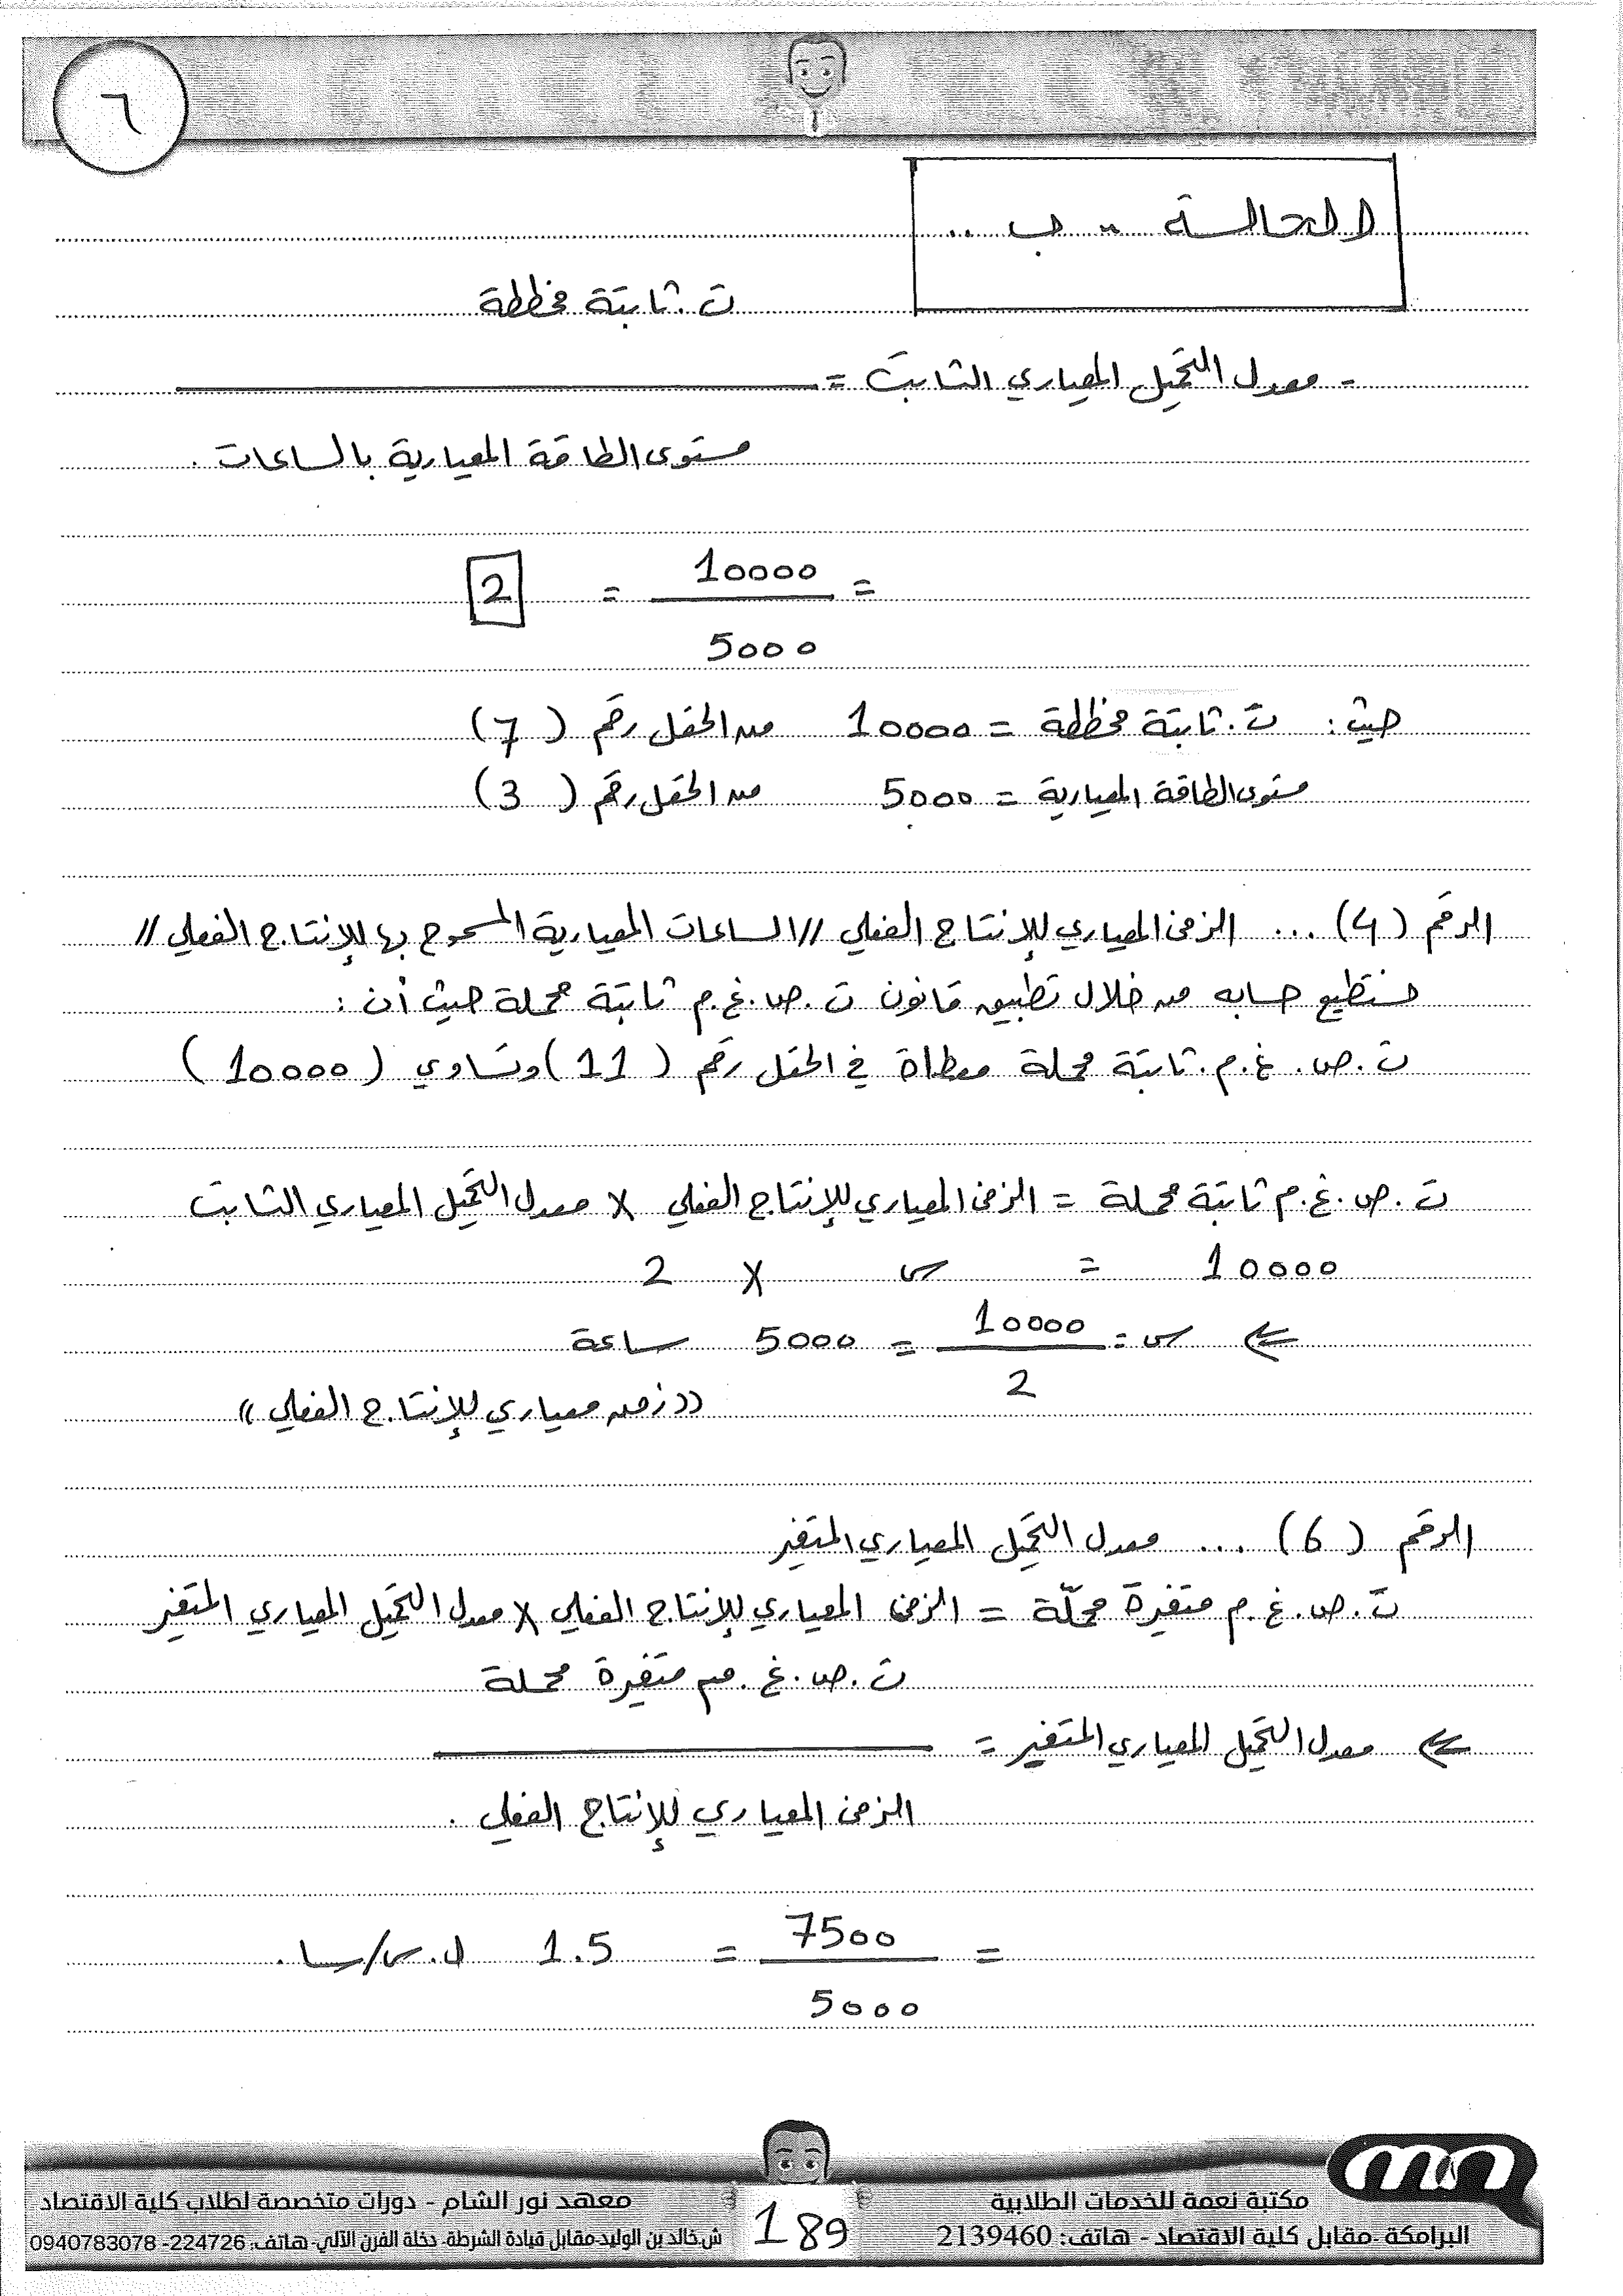 ٦
الحالة - ب ..
ت. ثابتة مخططة
- معدل التحميل المعياري الثابت =
مستوى الطاقة المعيارية بالساعات .
= 10000 = 2
5000
حيث : ت. ثابتة مخططة = 10000 من الحقل رقم ( 7 )
مستوى الطاقة المعيارية = 5000 من الحقل رقم ( 3 )
الرقم ( 4 ) ... الزمن المعياري للإنتاج الفعلي // الساعات المعيارية المسموح بها للإنتاج الفعلي //
نستطيع حسابه من خلال تطبيق قانون ت . ص . غ . م ثابتة محملة حيث أن :
ت . ص . غ . م . ثابتة محملة معطاة في الحقل رقم ( 11 ) وتساوي ( 10000 )
ت . ص . غ . م ثابتة محملة = الزمن المعياري للإنتاج الفعلي X معدل التحميل المعياري الثابت
10000 = س X 2
⇐ س = 10000 = 5000 ساعة
2
(( زمن معياري للإنتاج الفعلي ))
الرقم ( 6 ) ... معدل التحميل المعياري المتغير
ت . ص . غ . م متغيرة محمّلة = الزمن المعياري للإنتاج الفعلي X معدل التحميل المعياري المتغير
ت . ص . غ . م متغيرة محملة
⇐ معدل التحميل المعياري المتغير =
الزمن المعياري للإنتاج الفعلي .
= 7500 = 1.5 ل.س/سا .
5000
مكتبة نعمة للخدمات الطلابية
البرامكة -مقابل كلية الاقتصاد - هاتف: 2139460
189
معهد نور الشام - دورات متخصصة لطلاب كلية الاقتصاد
ش.خالد بن الوليد-مقابل قيادة الشرطة- دخلة الفرن الآلي- هاتف: 224726- 0940783078